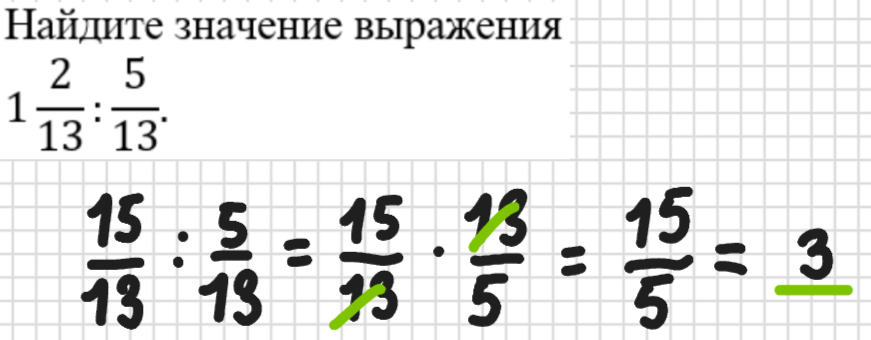 Найдите значение выражения
1 2/13 : 5/13.
15/13 : 5/13 = 15/13 · 13/5 = 15/5 = 3